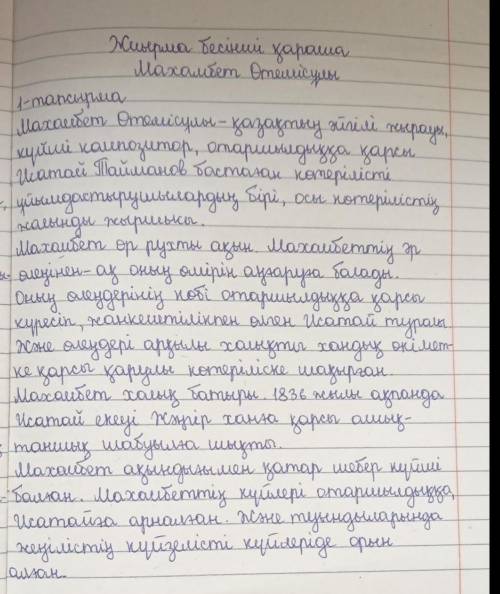 Жиырма бесінші қараша
Махамбет Өтемісұлы
1-тапсырма
Махамбет Өтемісұлы - қазақтың әйгілі жырауы,
күйші композитор, отаршылдыққа қарсы
Исатай Тайманов бастаған көтерілісті
ұйымдастырушылардың бірі, осы көтерілістің
жалынды жыршысы.
Махамбет өр рухты ақын. Махамбеттің әр
өлеңінен-ақ оның өмірін аңғаруға болады.
Оның өлеңдерінің көбі отаршылдыққа қарсы
күресіп, жанкештілікпен өлген Исатай туралы
Және өлеңдері арқылы халықты хандық өкімет-
ке қарсы қарулы көтеріліске шақырған.
Махамбет халық батыры. 1836 жылы ақпанда
Исатай екеуі Жәңгір ханға қарсы ашық-
таншық шабуылға шықты.
Махамбет ақындығымен қатар шебер күйші
болған. Махамбеттің күйлері отаршылдыққа,
Исатайға арналған. Және туындыларында
жеңілістің күйзелісті күйлеріде орын
алған.